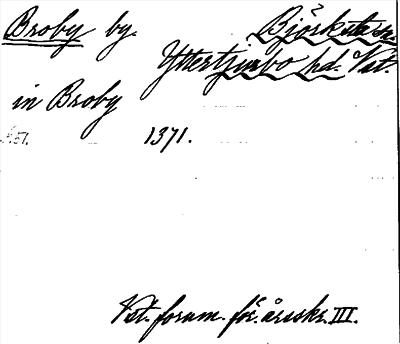 Broby by. Björksta sn.
Yttertjurbo hd. Vst.
in Broby
1371.
Vst. fornm. för. årsskr. III.